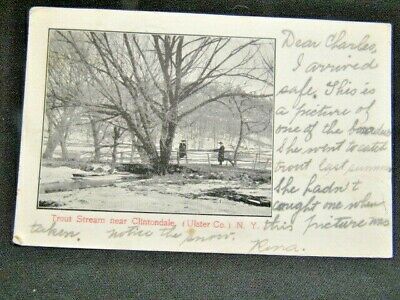 Dear Charles,
I arrived
safe. This is
a picture of
one of the boarders
She went to catch
trout last summer
She hadn't
caught one when
this picture was
taken. notice the snow.
Rena.
Trout Stream near Clintondale, (Ulster Co.) N. Y.